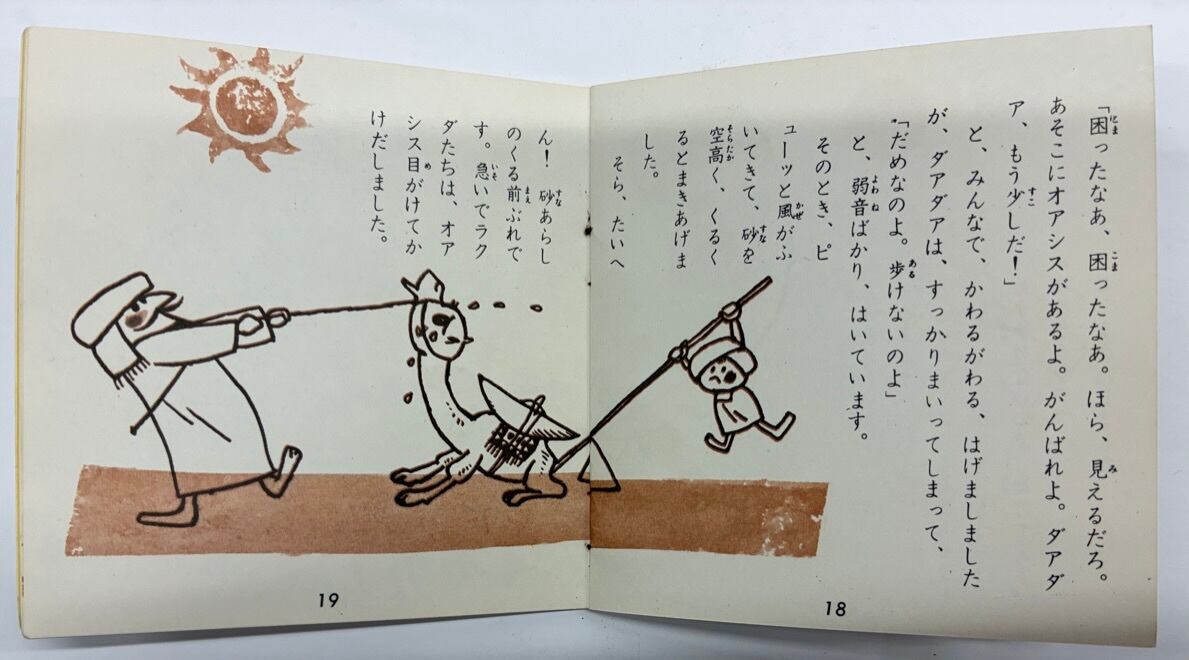 「困ったなあ、困ったなあ。ほら、見えるだろ。
あそこにオアシスがあるよ。がんばれよ。ダアダ
ア、もう少しだ!」
と、みんなで、かわるがわる、はげましました
が、ダアダアは、すっかりまいってしまって、
「だめなのよ。歩けないのよ」
と、弱音ばかり、はいています。
そのとき、ピ
ューッと風がふ
いてきて、砂を
空高く、くるく
るとまきあげま
した。
そら、たいへ
18
ん! 砂あらし
のくる前ぶれで
す。急いでラク
ダたちは、オア
シス目がけてか
けだしました。
19